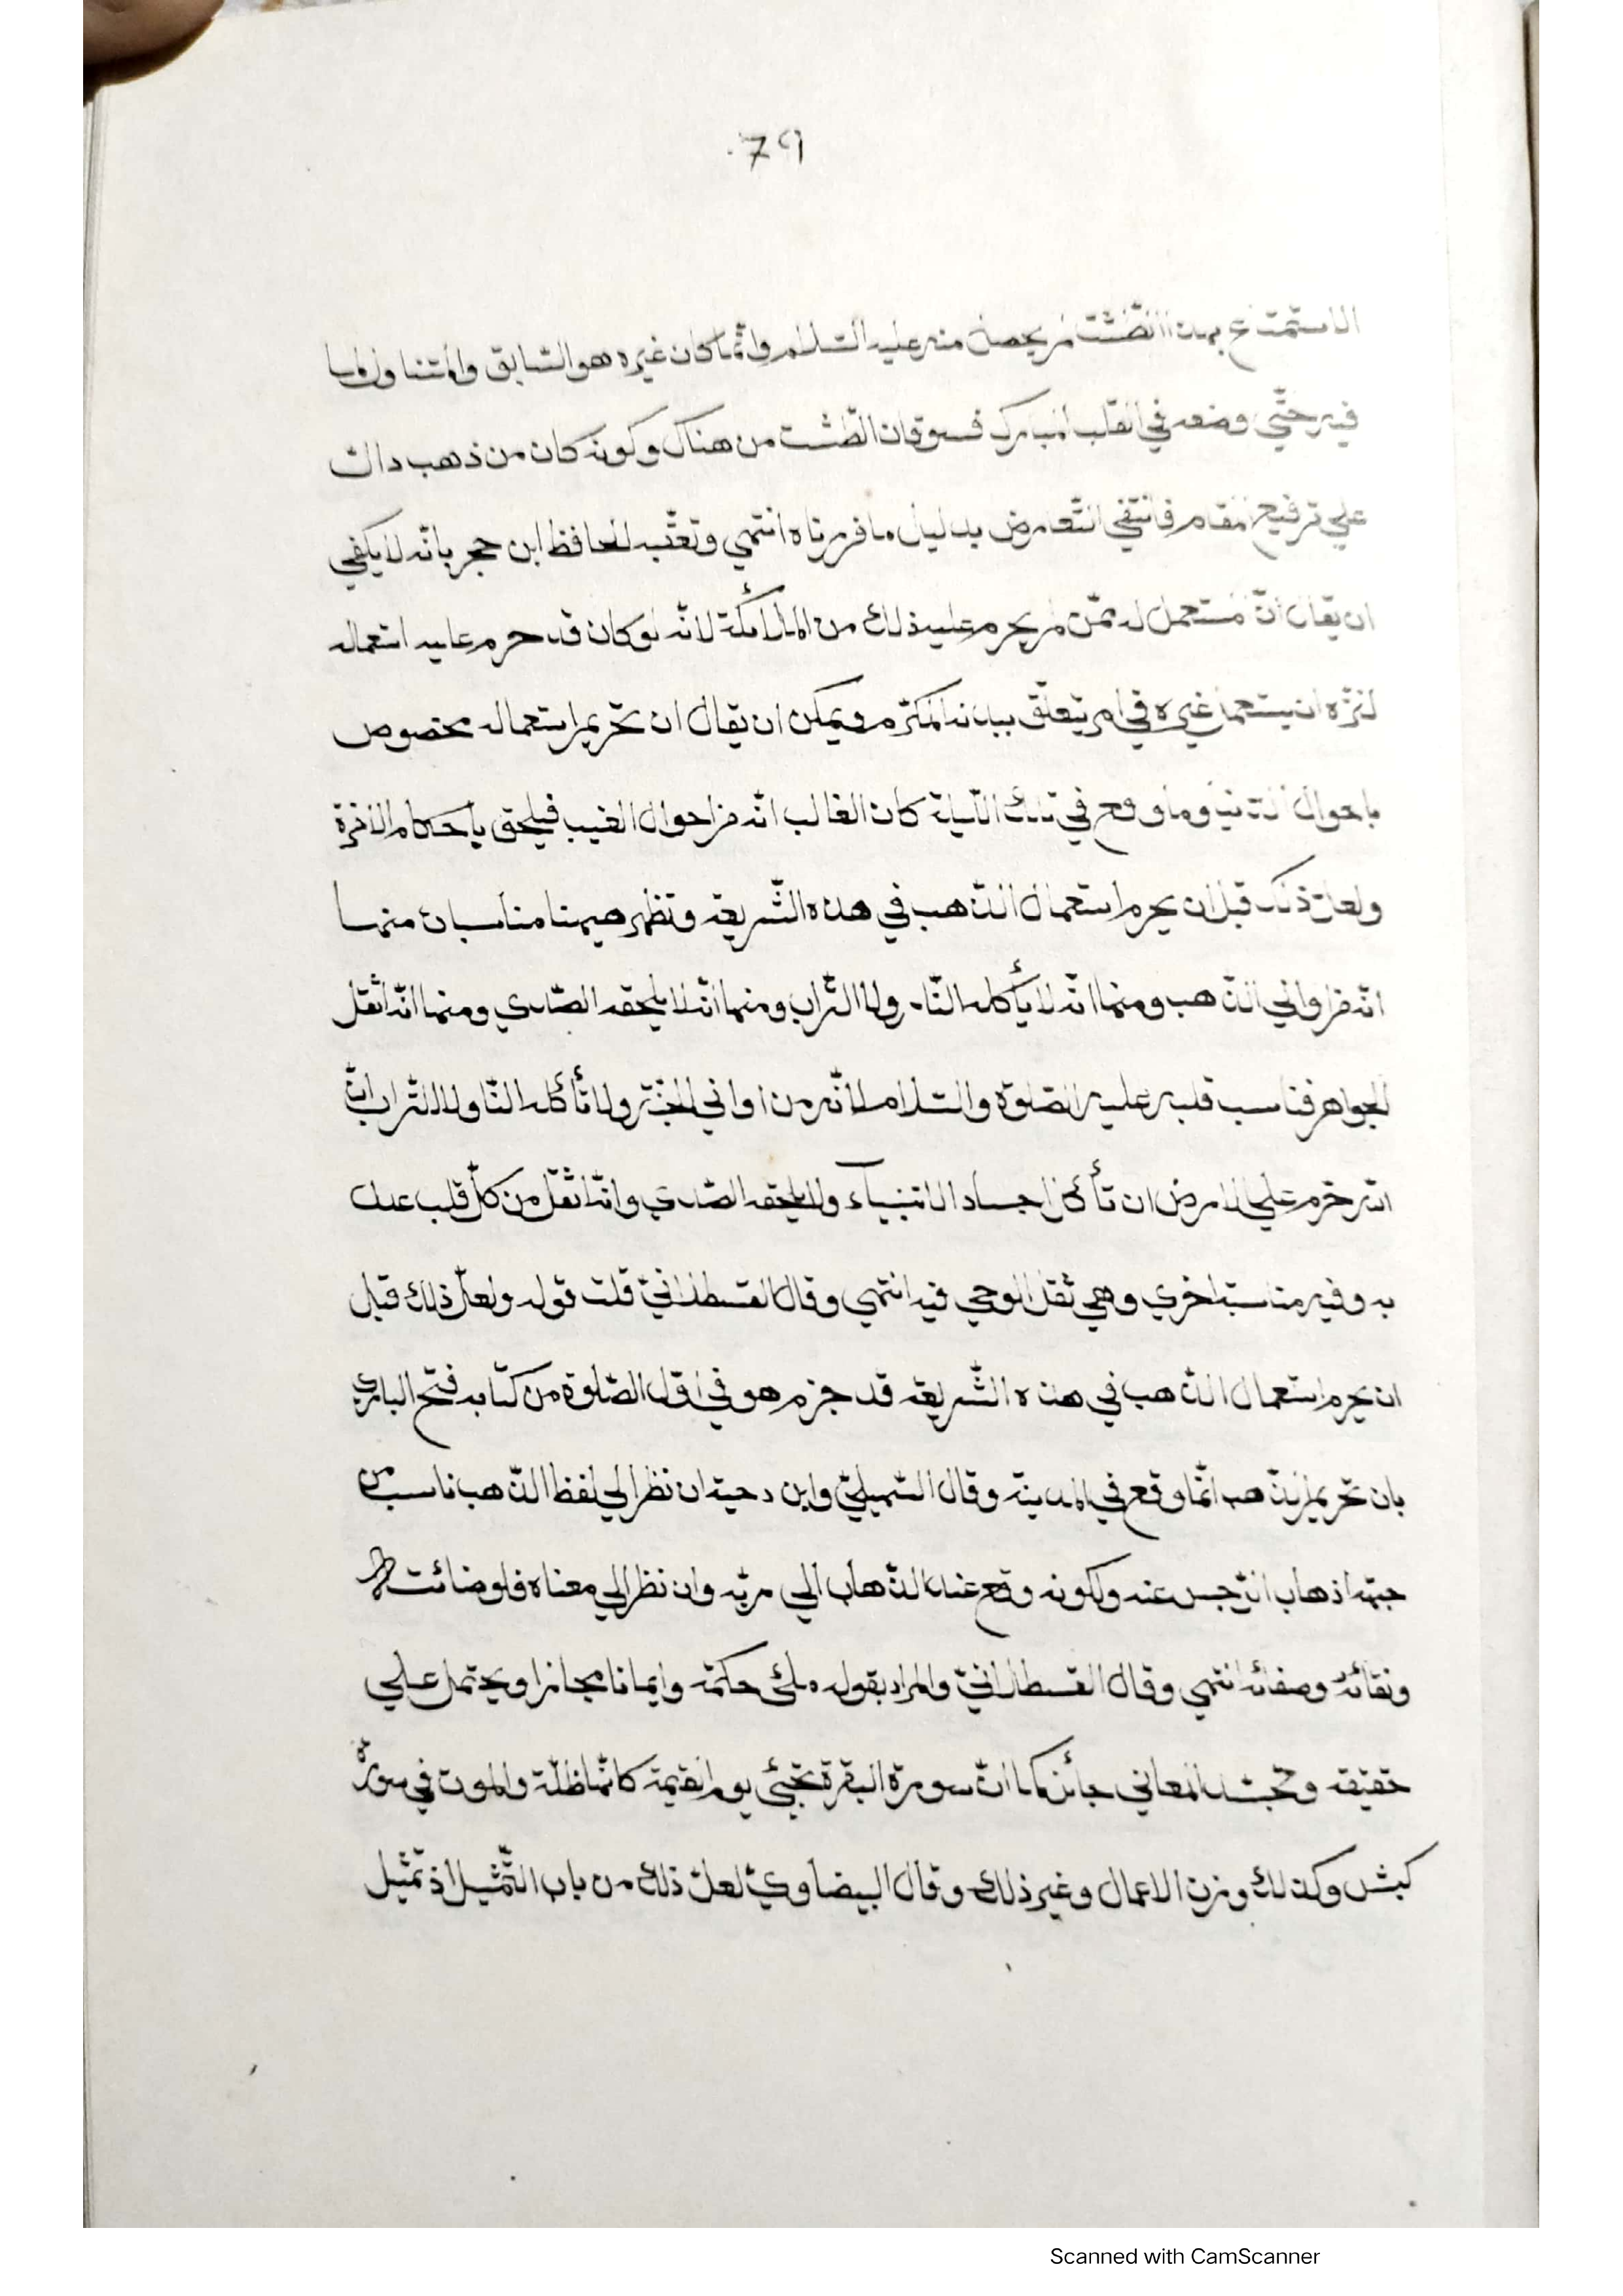 79
الاستمتاع بهذا الطّشت لم يحصل منه عليه السّلام وانّما كان غيره هو السّابق والمتناول لما
فيه حتّي وضعه في القلب المبارك فسوقان الطّشت من هناك وكونه كان من ذهب دالّ
علي ترفيع المقام فانتفي التّعارض بدليل ما قررناه انتهي وتعقّبه الحافظ ابن حجر بانّه لا يكفي
ان يقال انّ المستعمل له ممّن لم يحرم عليه ذلك من الملائكة لانّه لو كان قد حرم عليه استعماله
لنزّه ان يستعمل غيره في امر يتعلّق ببدنه المكرّم ويمكن ان يقال ان تحريم استعماله مخصوص
باحوال الدّنيا وما وقع في تلك اللّيلة كان الغالب انّه من احوال الغيب فيلحق باحكام الآخرة
ولعلّ ذلك قبل ان يحرم استعمال الذّهب في هذه الشّريعة وتظهر هيهنا مناسبات منها
انّه من اواني الذّهب ومنها انّه لا يأكله النّار ولا التّراب ومنها انّه لا يلحقه الصّدي ومنها انّه اثقل
الجواهر فناسب قلبه عليه الصّلوة والسّلام لانّه من اواني الجنّة ولا تأكله النّار ولا التّراب انّ
اللّه حرّم علي الارض ان تأكل اجساد الانبياء ولا يلحقه الصّدي وانّه اثقل من كلّ قلب عدل
به وفيه مناسبة اخري وهي ثقل الوحي فيه انتهي وقال القسطلانيّ قلت قوله ولعلّ ذلك قبل
ان يحرم استعمال الذّهب في هذه الشّريعة قد جزم هو في اوّل الصّلوة من كتابه فتح الباري
بان تحريم الذّهب انّما وقع في المدينة وقال السّهيليّ وابن دحية ان نظر الي لفظ الذّهب ناسب من
جهة اذهاب الرّجس عنه ولكونه وقع عند الذّهاب الي ربّه وان نظر الي معناه فلوضائته
ونقائه وصفائه انتهي وقال القسطلانيّ والمراد بقوله ملئ حكمة وايمانا مجازا ويحتمل علي
حقيقة وتجسّد المعاني جائز كما انّ سورة البقرة تجئي يوم القيمة كانّها ظلّة والموت في صورة
كبش وكذلك وزن الاعمال وغير ذلك وقال البيضاويّ لعلّ ذلك من باب التّمثيل اذ تمثيل
Scanned with CamScanner